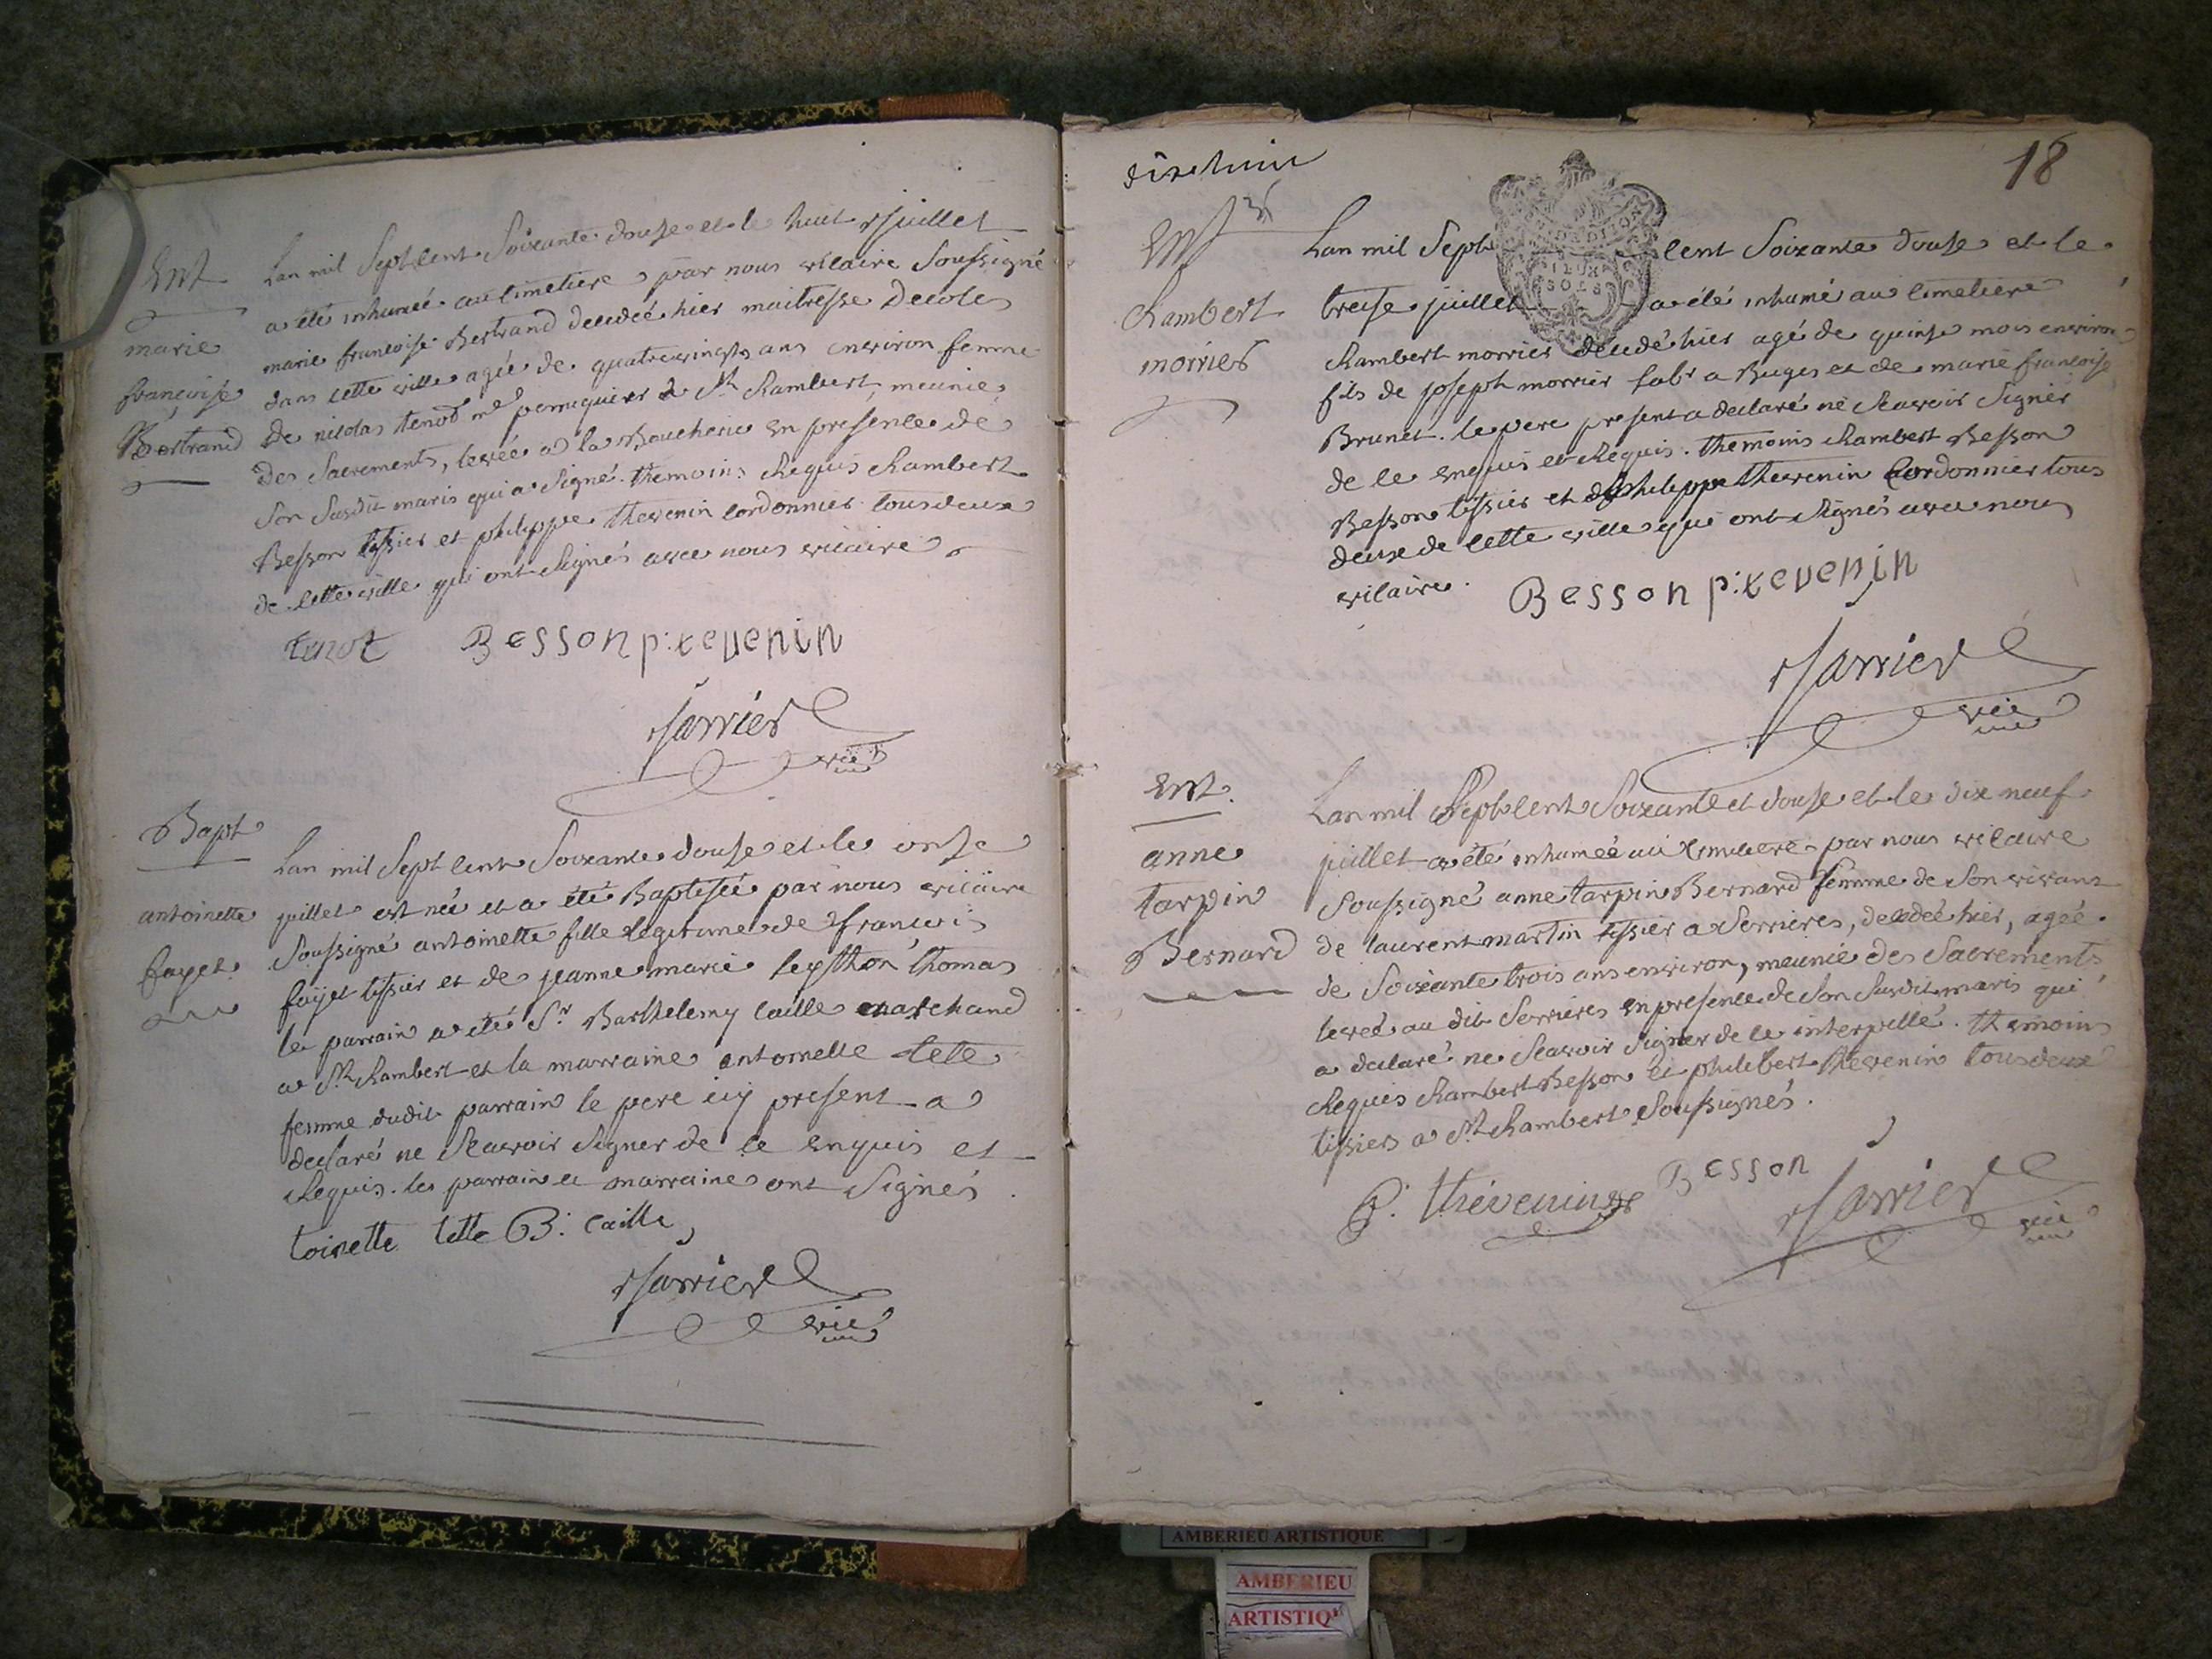 Ent
marie
francoise
Bertrand
Lan mil Sept Cent Soixante douse et le huit juillet
a été inhumée au Cimetiere par nous vicaire Soussigné
marie francoise Bertrand decedée hier maitresse decole
dans cette ville agée de quatrevingts ans environ femme
de nicolas tenot md peruquier a St Rambert, meunie
des Sacrements, levée a la Boucherie en presence de
Son Susdit maris qui a Signé. themoins Requis Rambert
Besson tissier et philippe thevenin cordonnier tous deux
de cette ville qui ont Signés avec nous vicaire
tenot Besson p: tevenin
Jarrier
vic
Bapt
antoinette
fayet
Lan mil Sept Cent Soixante douse et le onse
juillet est née et a été Baptisée par nous vicaire
Soussigné antoinette fille legitime de francois
fayet tissier et de jeanne marie Leython thomas
le parrain a été Sr Barthelemy Caille marchand
a St Rambert et la marraine antoinette tete
femme dudit parrain le pere icy present a
declaré ne Scavoir Signer de ce enquis et
Requis. les parrain et marraine ont Signés.
toinette tette B: caille
Jarrier
vic
dix huit
18
Ent
Rambert
morrier
Lan mil Sept Cent Soixante douse et le
treise juillet a été inhumé au Cimetiere
Rambert morrier decedé hier agé de quinse mois environ
fils de joseph morrier labr a Buges et de marie francoise
Brunet. le pere present a declaré ne Scavoir Signer
de ce enquis et Requis. themoins Rambert Besson
Besson tissier et philippe thevenin Cordonnier tous
deux de cette ville qui ont Signés avec nous
vicaire.
Besson p: tevenin
Jarrier
vic
Ent.
anne
tarpin
Bernard
Lan mil Sept Cent Soixante et douse et le dix neuf
juillet a été inhumée au Cimetiere par nous vicaire
Soussigné anne tarpin Bernard femme de Son vivant
de laurent martin tissier a Serrieres, decedée hier, agée
de Soixante trois ans environ, meunie des Sacrements
levée au dit Serrieres en presence de Son Susdit maris qui
a declaré ne Scavoir Signer de ce interpellé. themoins
Requis Rambert Besson et philibert thevenin tous deux
tissiers a St Rambert Soussignés.
P. thévenin Besson
Jarrier
vic
AMBERIEU ARTISTIQUE
AMBERIEU
ARTISTIQ